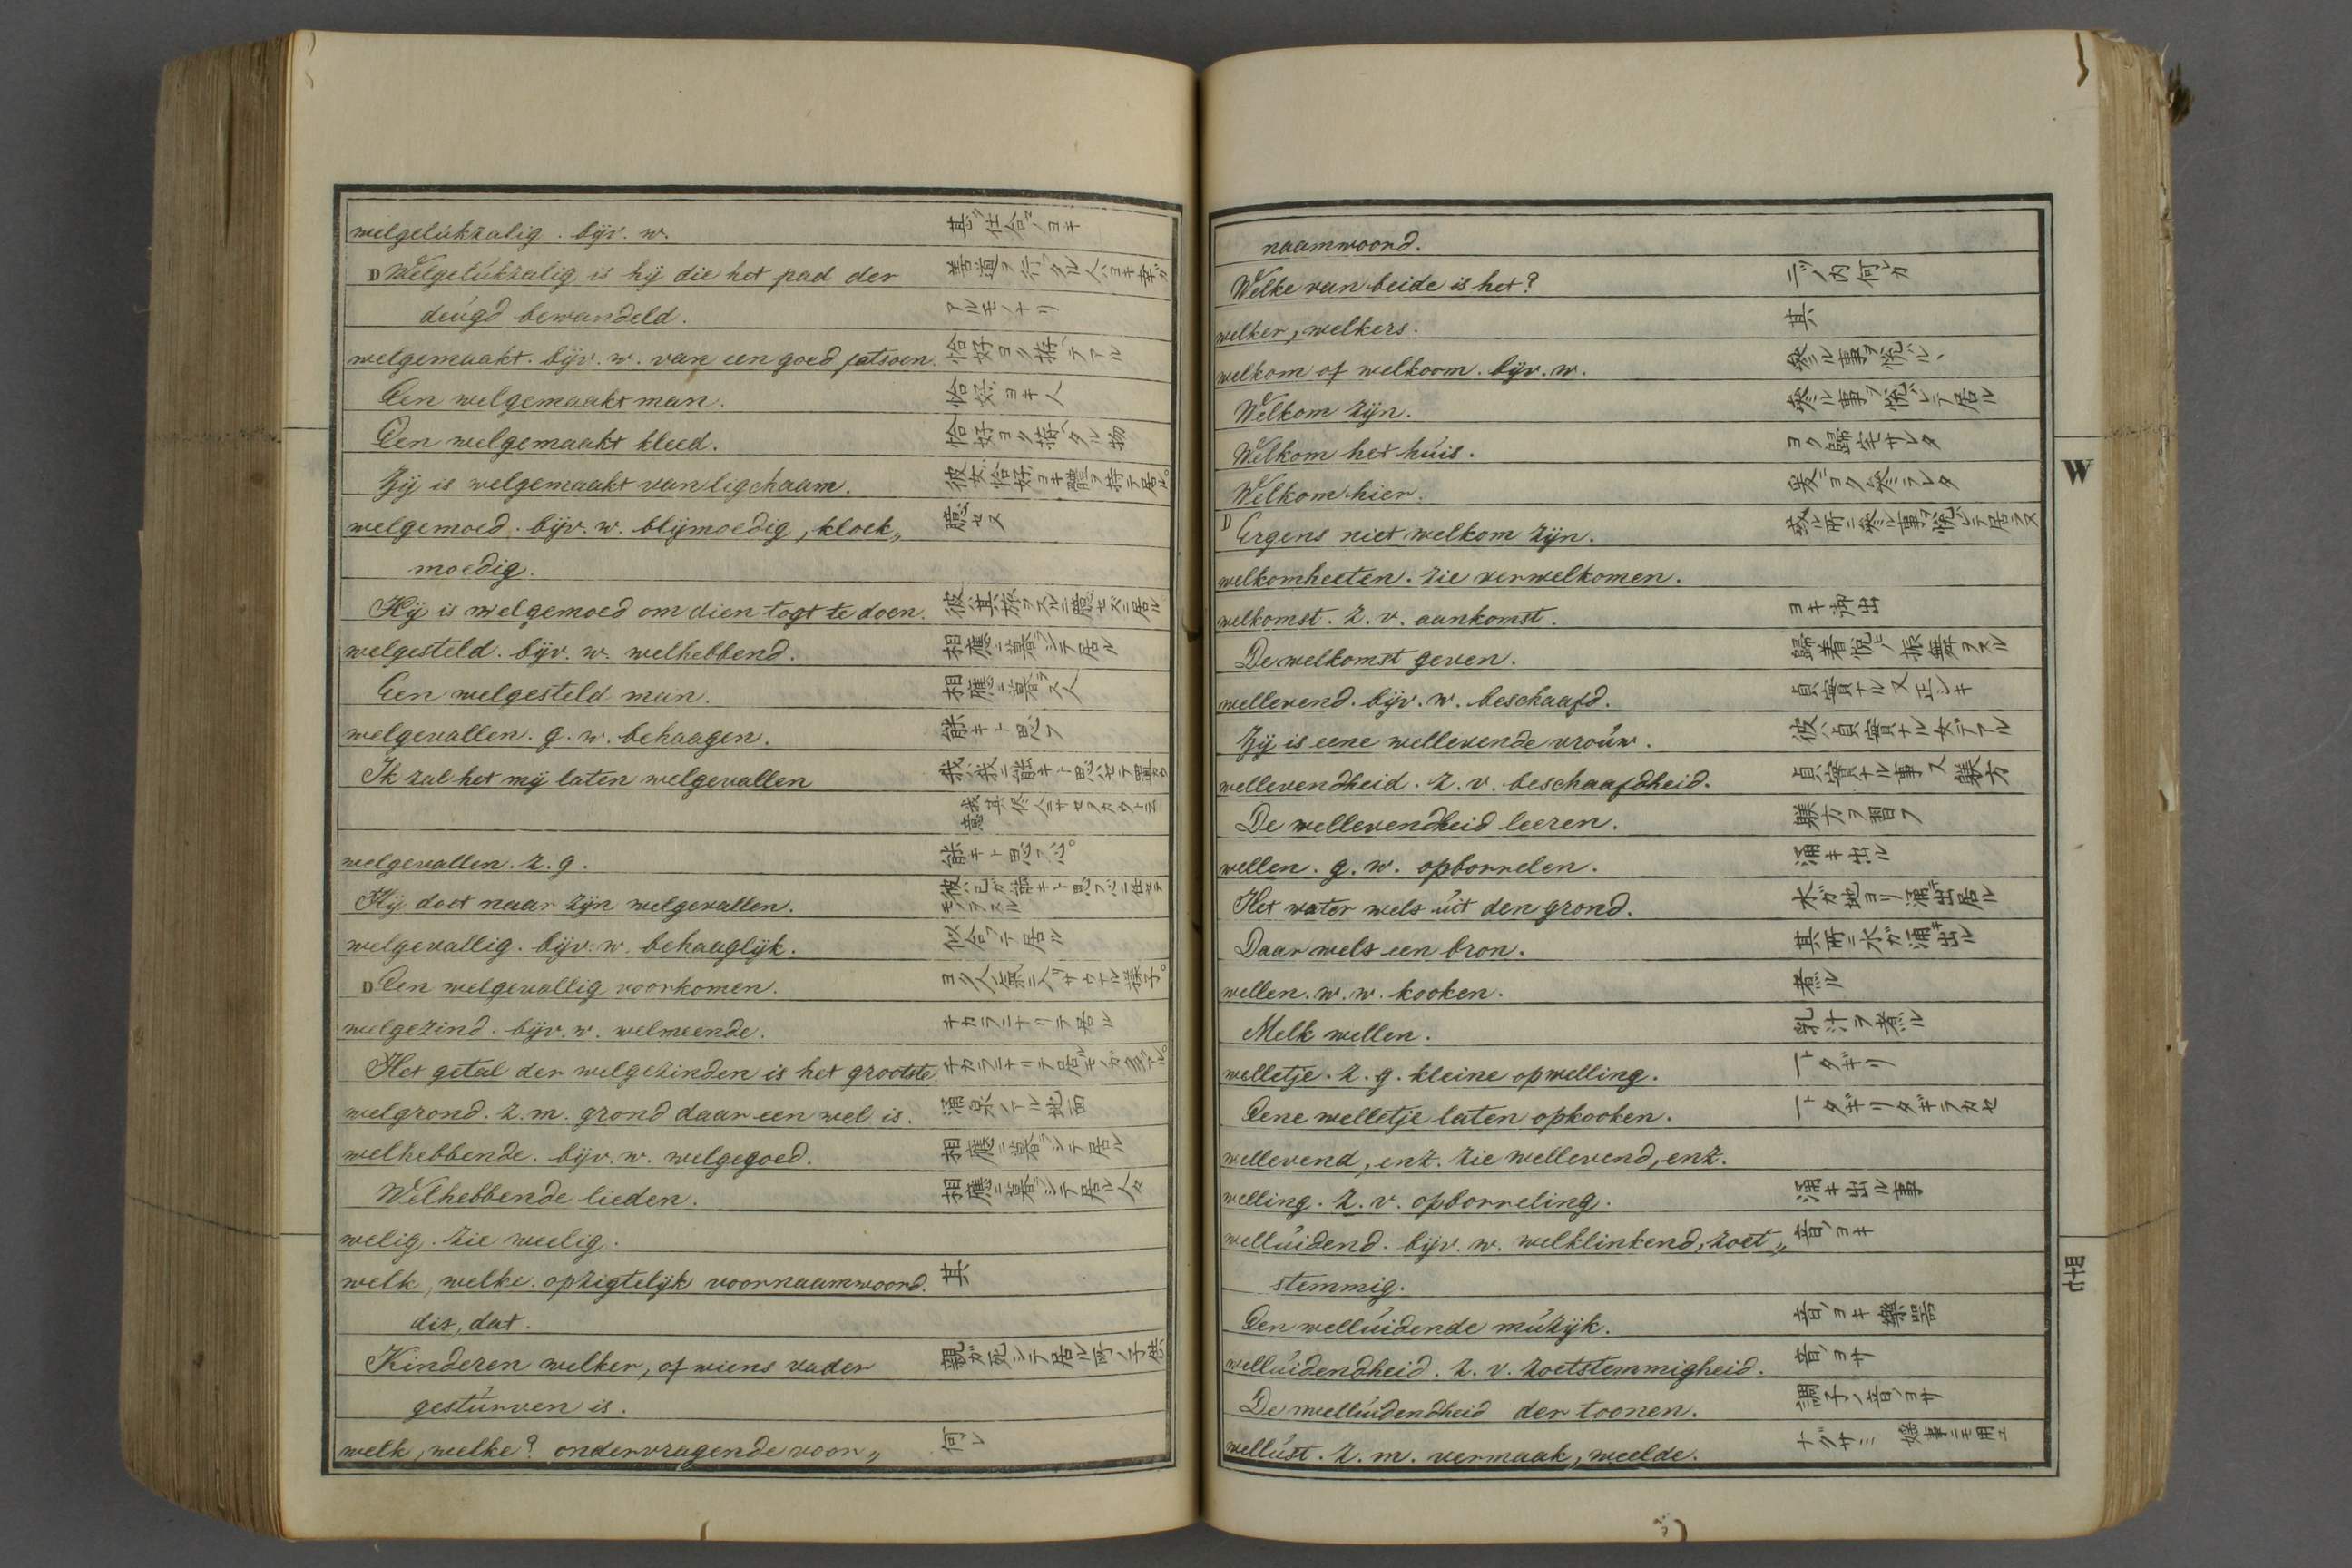 welgelúkzalig. bijv. w. 甚ダ仕合ノヨキ
D Welgelúkzalig is hij die het pad der 善道ヲ行タル人ハヨキ幸ガ
deúgd bewandeld. アルモノナリ
welgemaakt. bijv. w. van een goed fatsoen. 恰好ヨク拵ヘテアル
Een welgemaakt man. 恰好ヨキ人
Een welgemaakt kleed. 恰好ヨク拵ヘタル物
Zij is welgemaakt van ligchaam. 彼女ハ恰好ヨキ體ヲ持テ居ル。
welgemoed. bijv. w. blijmoedig, kloek„ 臆セヌ
moedig.
Hij is welgemoed om dien togt te doen. 彼ハ其旅ヲスルニ臆セズニ居ル
welgesteld. bijv. w. welhebbend. 相應ニ暮シテ居ル
Een welgesteld man. 相應ニ暮ス人
welgevallen. g. w. behaagen. 能キト思フ
Ik zal het mij laten welgevallen 我ハ我ニ能キト思ハセテ置ク
welgevallen. z. g. 能キト思フ心。
Hij doet naar zijn welgevallen. 彼ハ己ガ能キト思フ心ニ任セテ
モノヲスル
welgevallig. bijv. w. behaaglijk. 似合フテ居ル
D Een welgevallig voorkomen. ヨク人氣ニ入リサウナル様子。
welgezind. bijv. w. welmeende. チカラニナリテ居ル
Het getal der welgezinden is het grootste. チカラニナリテ居ルモノガ多クアル。
welgrond. z. m. grond daar een wel is. 涌泉ノアル地面
welhebbende. bijv. w. welgegoed. 相應ニ暮シテ居ル
Welhebbende lieden. 相應ニ暮シテ居ル人々
welig. zie weelig.
welk, welke. opzigtelijk voornaamwoord. 其
dis, dat.
Kinderen welker, of wiens vader 親ガ死シテ居ル所ノ子供
gestúrven is.
welk, welke? ondervragende voor„ 何レ
naamwoord.
Welke van beide is het? 二ツノ内何レカ
welker, welkers. 其
welkom of welkoom. bijv. w. 參ル事ヲ悦バル丶
Welkom zijn. 參ル事ヲ悦バレテ居ル
Welkom het húis. ヨク歸宅サレタ
Welkom hier. 爰ニヨク參ラレタ
D Ergens niet welkom zijn. 或ル所ニ參ル事ヲ悦バレテ居ラヌ
welkomheeten. zie verwelkomen.
welkomst. z. v. aankomst. ヨキ御出
De welkomst geven. 歸着悦ビノ振舞ヲスル
wellevend. bijv. w. beschaafd. 貞實ナル又正シキ
Zij is eene wellevende vroúw. 彼ハ貞實ナル女デアル
wellevendheid. z. v. beschaafdheid. 貞實ナル事又躾方
De wellevendheid leeren. 躾方ヲ習フ
wellen. g. w. opborrelen. 涌キ出ル
Het water wels úit den grond. 水ガ地ヨリ涌出居ル
Daar wels een bron. 其所ニ水ガ涌キ出ル
wellen. w. w. kooken. 煮ル
Melk wellen. 乳汁ヲ煮ル
welletje. z. g. kleine opwelling. 一トタギリ
Eene welletje laten opkooken. 一トタギリタギラカセ
wellevend, enz. zie wellevend, enz.
welling. z. v. opborreling. 涌キ出ル事
wellúidend. bijv. w. welklinkend, zoet„ 音ノヨキ
stemmig.
Een wellúidende múzijk. 音ノヨキ樂器
wellúidendheid. z. v. zoetstemmigheid. 音ノヨサ
De wellúidendheid der toonen. 調子ノ音ノヨサ
wellúst. z. m. vermaak, weelde. ナグサミ 婬事ニモ用エ
W